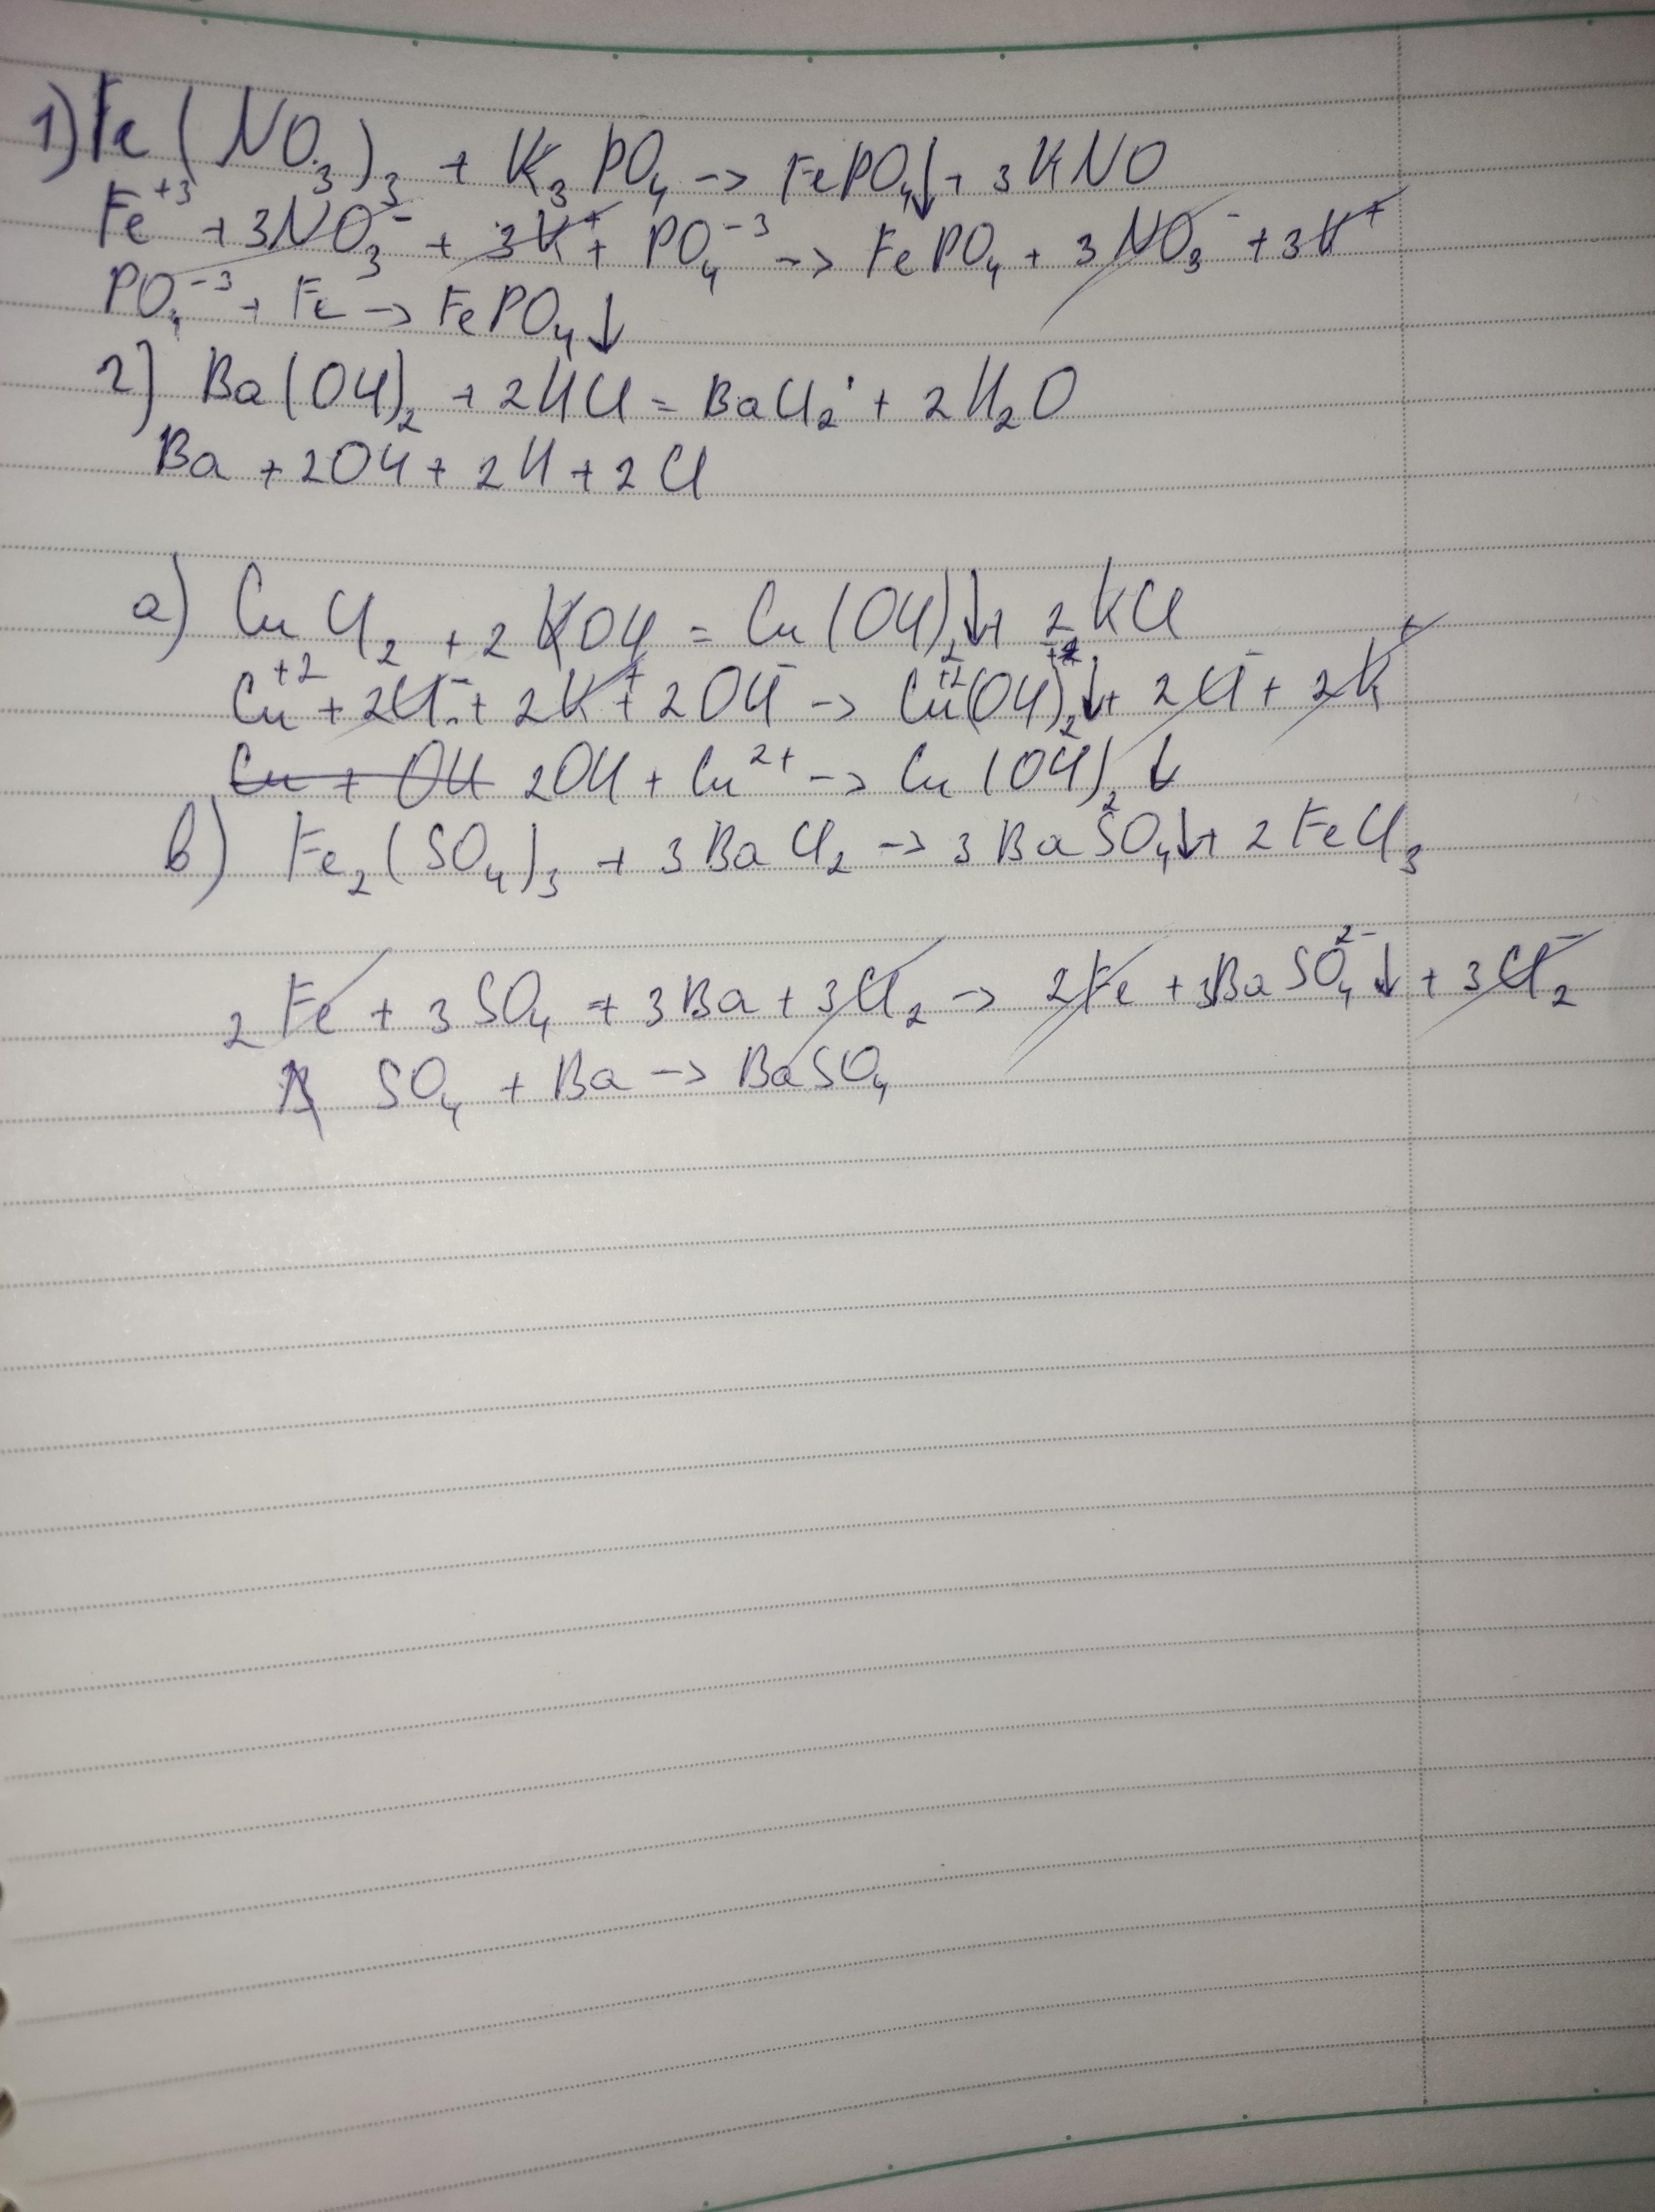 1) Fe(NO₃)₃ + K₃PO₄ → FePO₄↓ + 3KNO
Fe⁺³ + 3NO₃⁻ + 3K⁺ + PO₄⁻³ → FePO₄ + 3NO₃⁻ + 3K⁺
PO₄⁻³ + Fe → FePO₄↓
2) Ba(OH)₂ + 2HCl = BaCl₂ + 2H₂O
Ba + 2OH + 2H + 2Cl
a) CuCl₂ + 2KOH = Cu(OH)₂↓ + 2KCl
Cu⁺² + 2Cl⁻ + 2K⁺ + 2OH⁻ → Cu⁺²(OH)₂⁻↓ + 2Cl⁻ + 2K⁺
Cu + OH 2OH + Cu²⁺ → Cu(OH)₂↓
b) Fe₂(SO₄)₃ + 3BaCl₂ → 3BaSO₄↓ + 2FeCl₃
2Fe + 3SO₄ + 3Ba + 3Cl₂⁻ → 2Fe + 3BaSO₄²⁻↓ + 3Cl₂⁻
SO₄ + Ba → BaSO₄